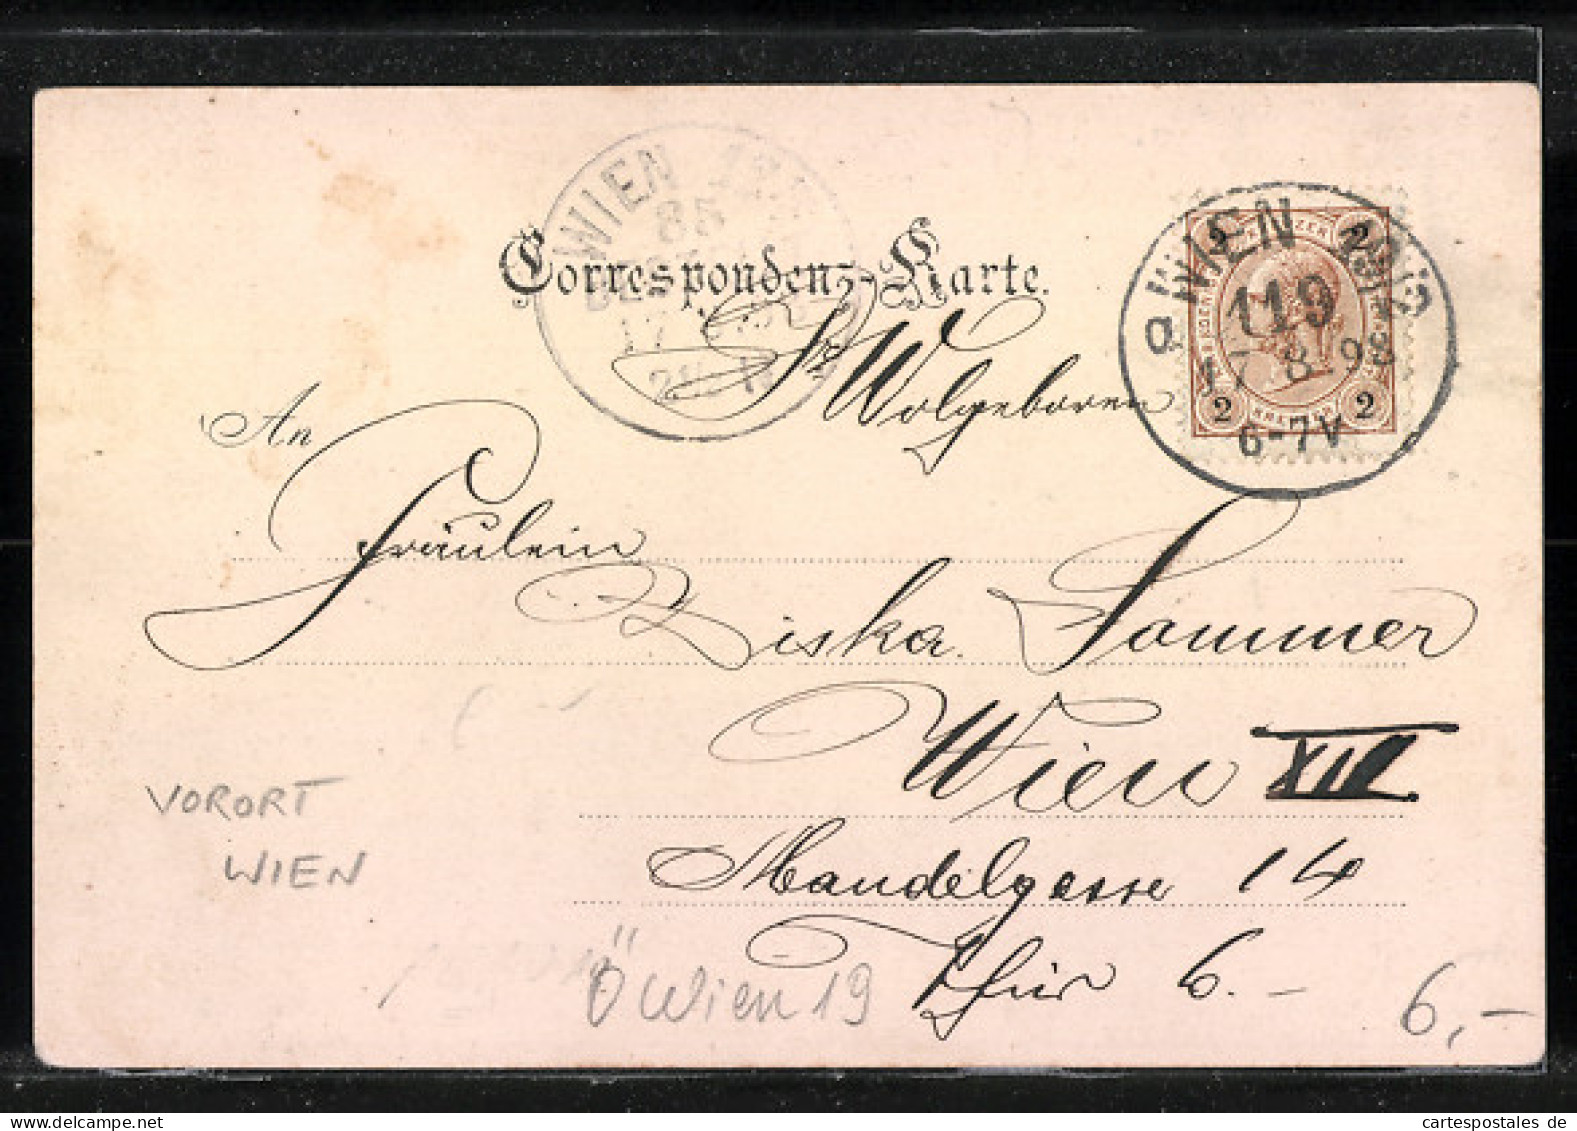 WIEN
85
17
Correspondenz-Karte.
WIEN
119
17 8.98
6-7V
2 2
Sr Wolgeboren
An
Fräulein
Ziska Sommer
Wien XII
Mandelgasse 14
Thür 6.-
VORORT
WIEN
Ö Wien 19
6,-
cartespostales de